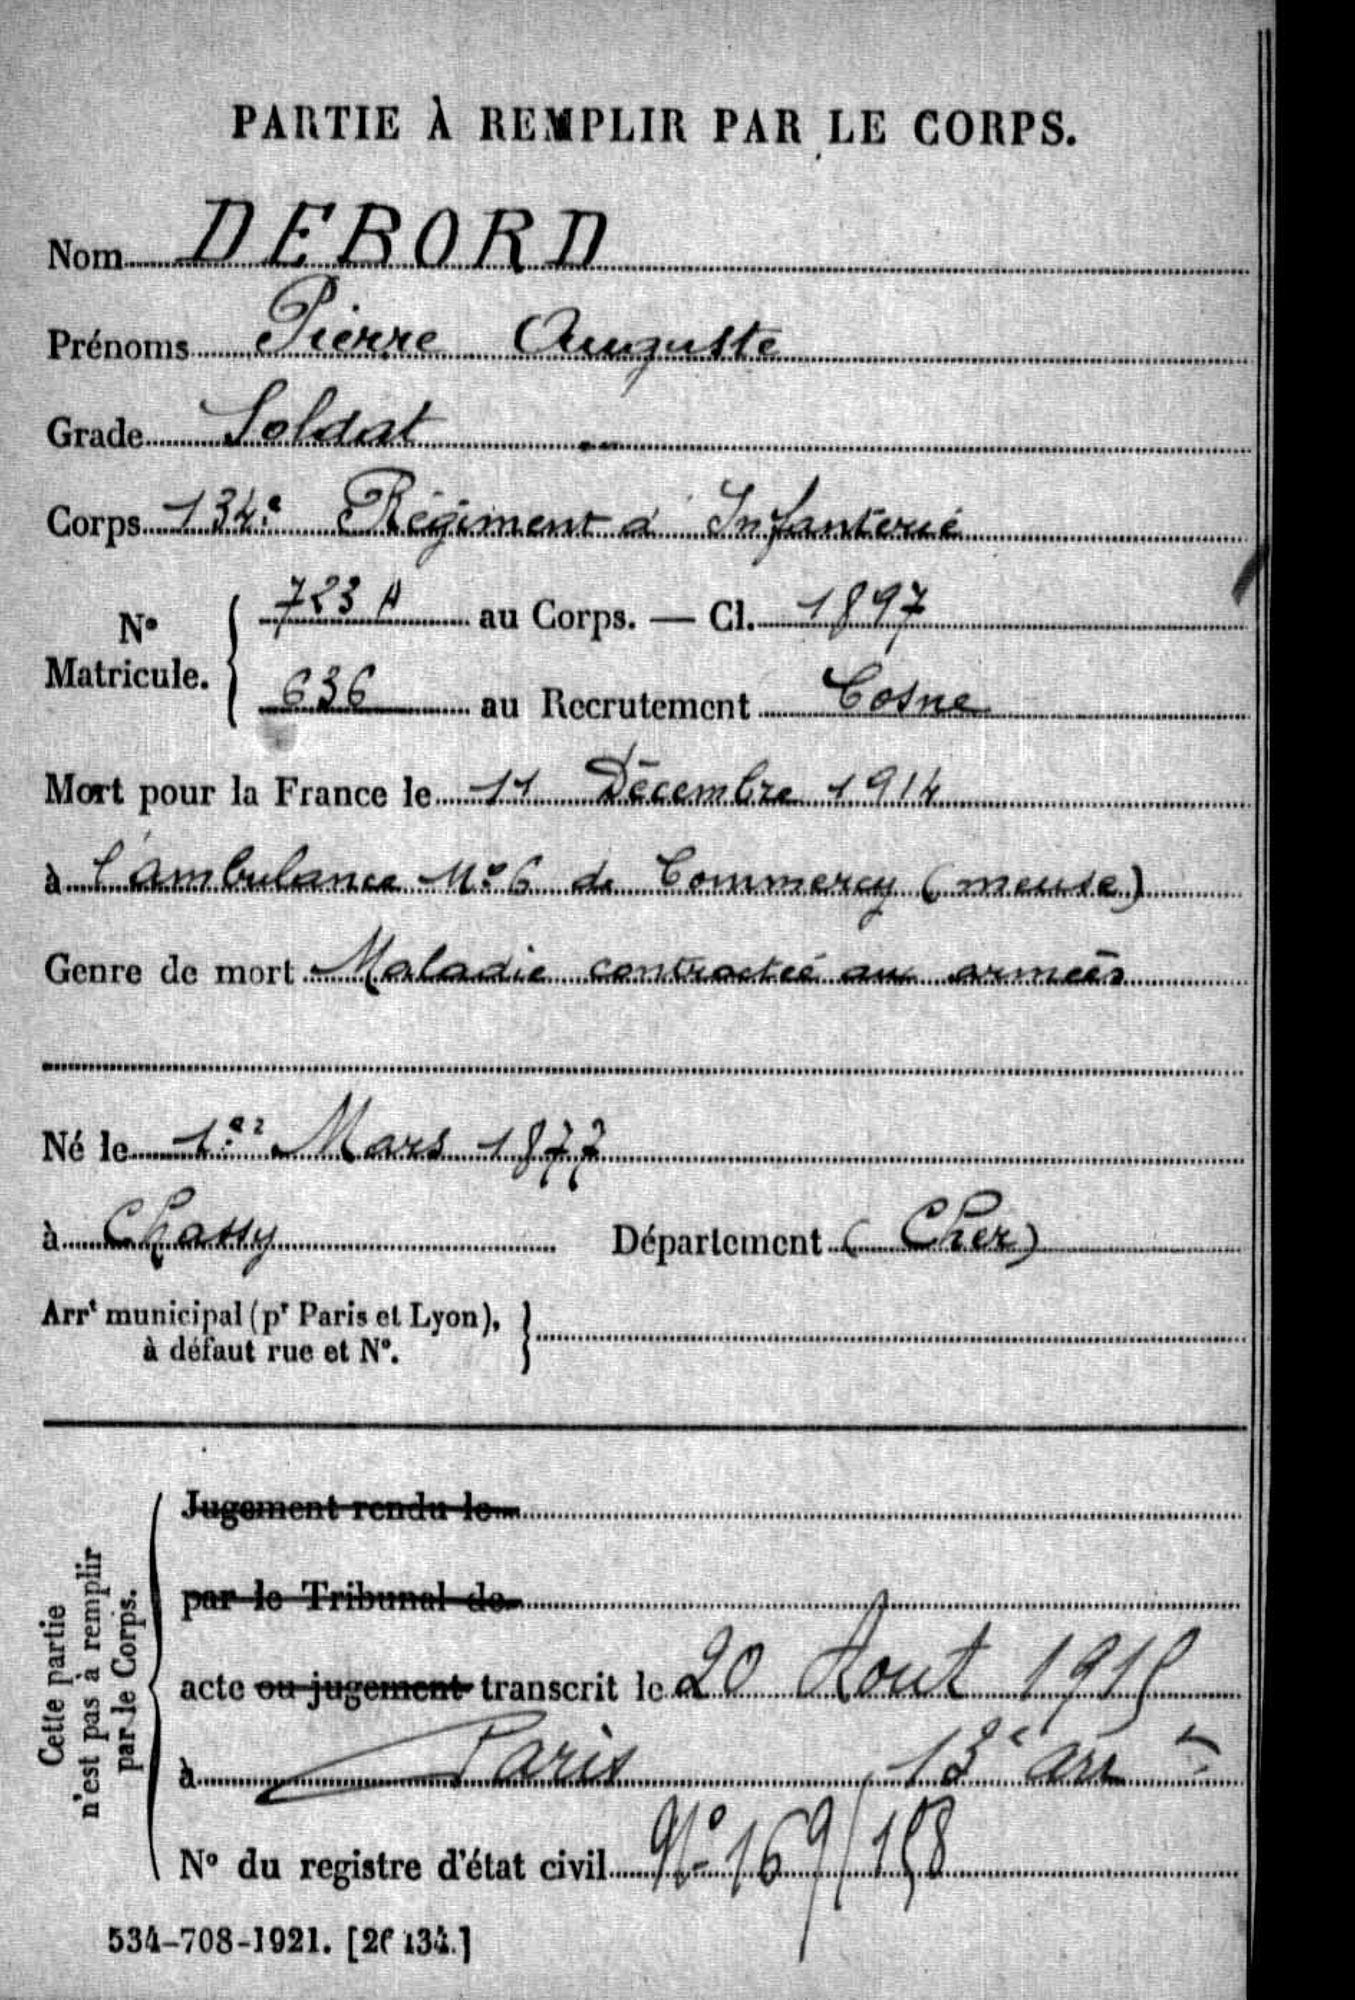 PARTIE À REMPLIR PAR LE CORPS.
Nom DEBORD
Prénoms Pierre Auguste
Grade Soldat
Corps 134e Régiment d'Infanterie
N° Matricule. 723 A au Corps. — Cl. 1897
636 au Recrutement Cosne
Mort pour la France le 11 Décembre 1914
à l'ambulance N° 6 de Commercy (meuse)
Genre de mort Maladie contractée aux armées
Né le 1er Mars 1877
à Chassy Département (Cher)
Arrt municipal (pr Paris et Lyon),
à défaut rue et N°.
Cette partie
n'est pas à remplir
par le Corps.
Jugement rendu le
par le Tribunal de
acte ou jugement transcrit le 20 Aout 1915
à Paris 13e arrt
N° du registre d'état civil N° 169/158
534-708-1921. [26134.]